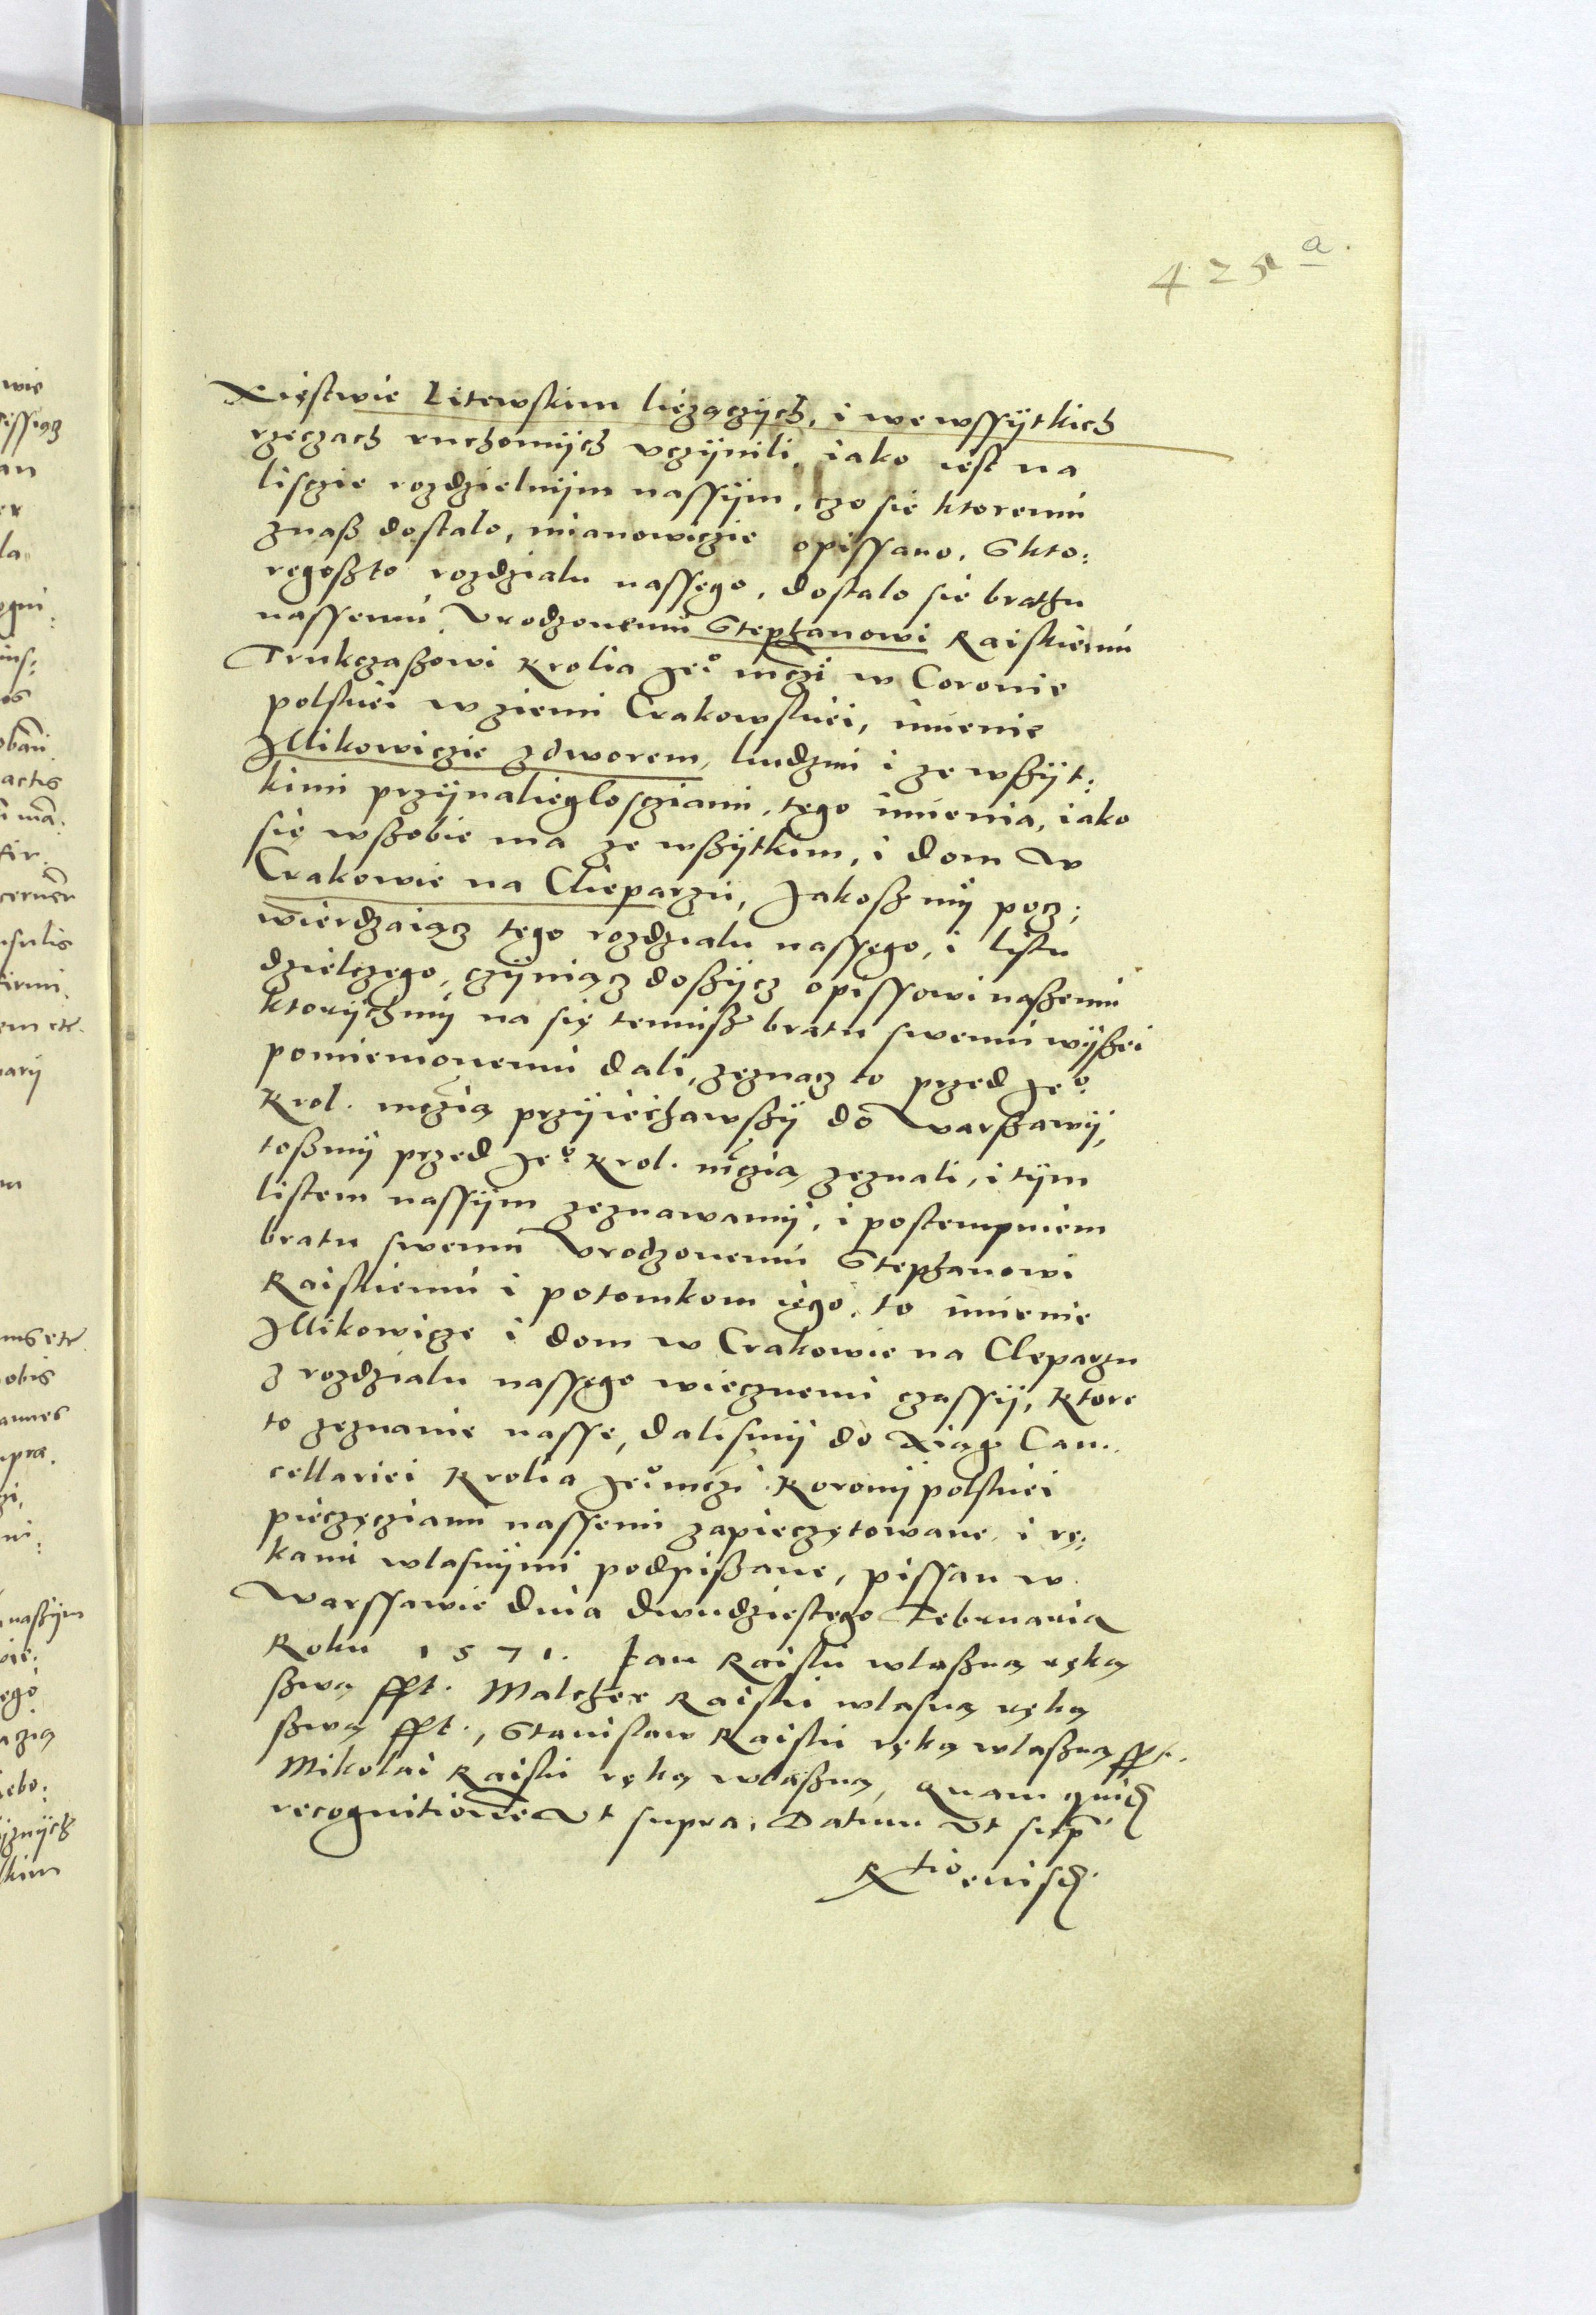 425 a.
Xięstwie Litewskim lieżączÿch, i we wssÿtkich
rzeczach ruchomÿch uczÿnili, iako iest na
lisczie rozdzielnÿm nassÿm, czo sie ktoremu
znasz dostalo, mianowiczie opissano. Skto:
regoszto rozdzialu nassego, dostalo sie brathu
nassemu Vrodzonemu Stephanowi Raiskiemu
Trukczaszowi Krolia Jeo mczi w Coronie
polskiei w ziemi Crakowskiei, imienie
Illikowiczie z dworem, liudzmi i ze wszÿt:
kimi przÿnalieglosczami, tego imienia, iako
się wszobie ma ze wszÿtkim, i dom w
Crakowie na Clieparzu, Jakosz mÿ pocz:
wierdzaiącz tego rozdzialu nassego, i listu
dzielczego, czÿniącz doszÿcz opissowi naszemu
ktorÿchmÿ na się temusz bratu swemu wÿszei
pomienionemu dali, zeznacz to przed Jeo
Krol. mczią przÿiechawszÿ do Warszawÿ,
toszmÿ przed Jeo Krol. mczią zeznali, i tÿm
listem nassÿm zeznawamÿ, i postempuiem
bratu swemu Vrodzonemu Stephanowi
Raiskiemu i potomkom iego, to imienie
Illikowicze i dom w Crakowie na Cleparzu
z rozdzialu nassego wiecznemi czassÿ, Ktore
to zeznanie nasse, dalismÿ do Xiąg Can:
cellariei Krolia Jeo mczi Koronÿ polskiei
pieczęcziami nassemi zapieczętowane, i rę:
kami wlasnÿmi podpiszane, pissan w
Warssawie dnia dwudziestego Februaria
Roku 1571. Jan Raiski wlaszną ręką
szwą sst. Malcher Raiski wlasną ręką
szwą sst., Stanislaw Raiski ręką wlaszną sst.
Mikolai Raiski ręką wlaszną, quam quidem
recognitionem Vt supra, Datum Vt supra
Rtio eiusdem